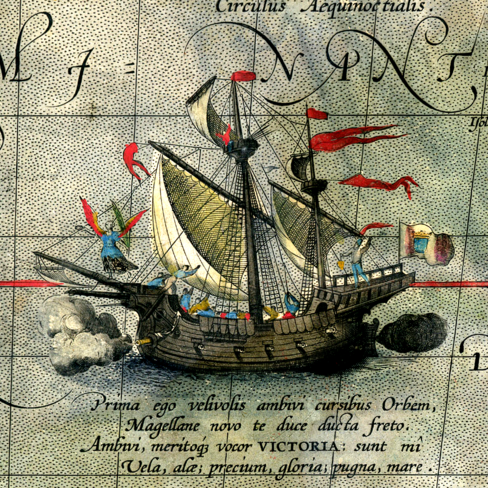 Circulus Aequinoctialis.
M A = N P N T
Prima ego velivolis ambivi cursibus Orbem,
Magellane novo te duce ducta freto.
Ambivi, meritoq; vocor VICTORIA: sunt mî
Vela, alæ; precium, gloria; pugna, mare.